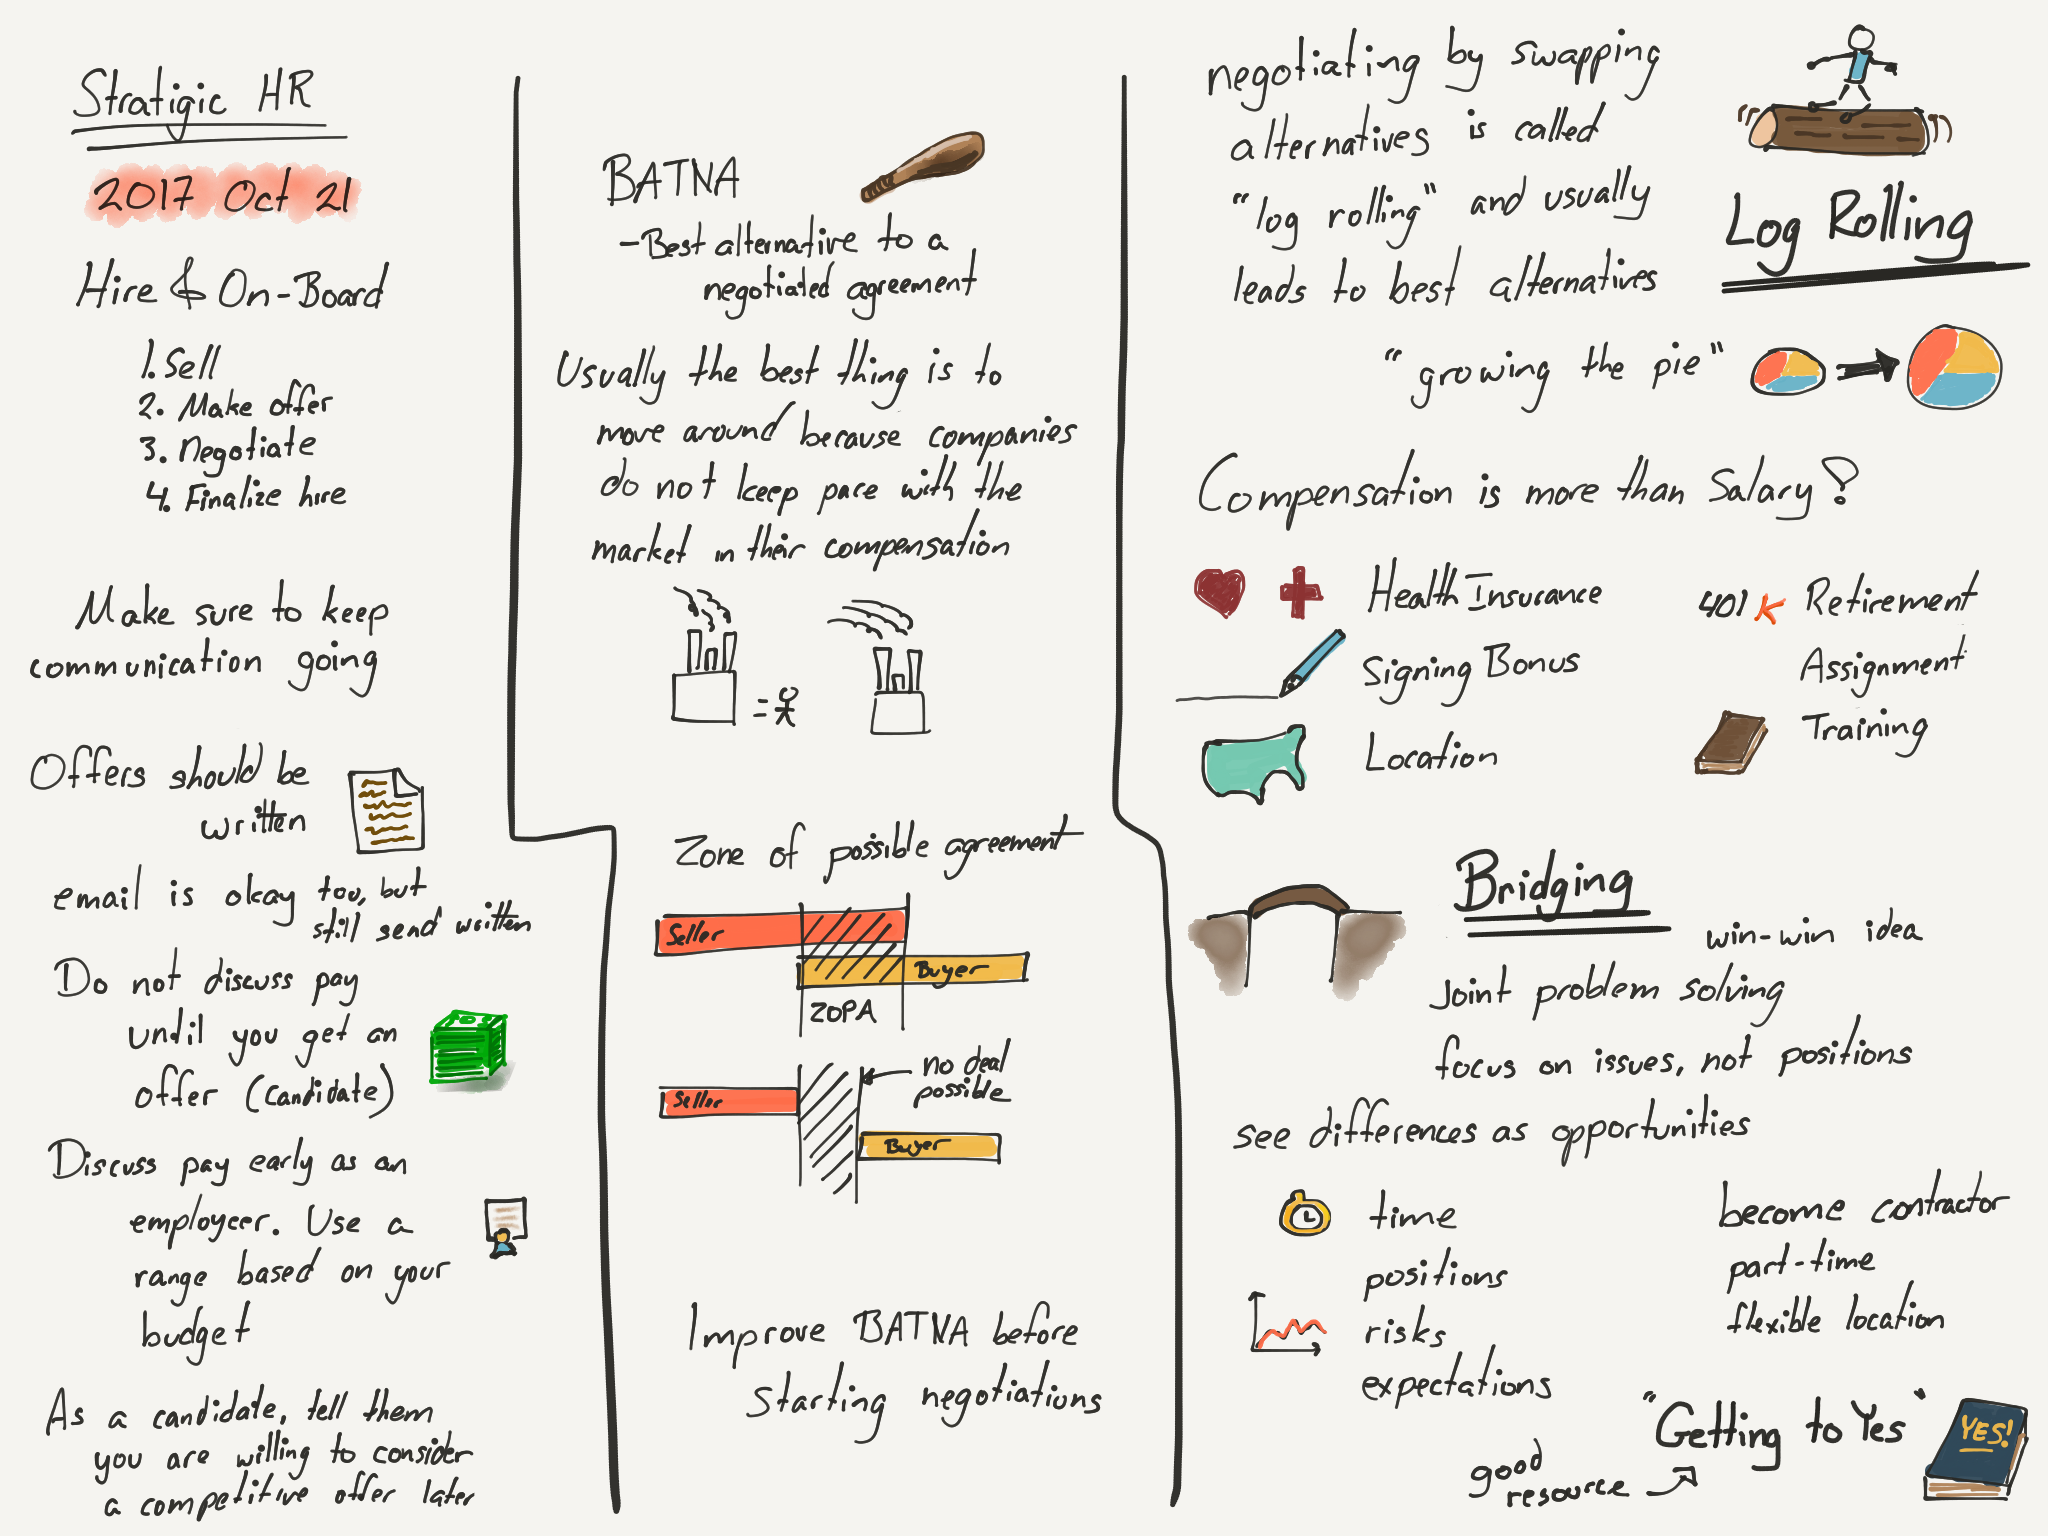 Stratigic HR
2017 Oct 21
Hire & On-Board
1. Sell
2. Make offer
3. Negotiate
4. Finalize hire
Make sure to keep
communication going
Offers should be
written
email is okay too, but
still send written
Do not discuss pay
until you get an
offer (candidate)
Discuss pay early as an
employeer. Use a
range based on your
budget
As a candidate, tell them
you are willing to consider
a competitive offer later
BATNA
- Best alternative to a
negotiated agreement
Usually the best thing is to
move around because companies
do not keep pace with the
market in their compensation
=
Zone of possible agreement
Seller
Buyer
ZOPA
no deal
possible
Seller
Buyer
Improve BATNA before
starting negotiations
negotiating by swapping
alternatives is called
"log rolling" and usually
leads to best alternatives
Log Rolling
"growing the pie"
Compensation is more than Salary!
Health Insurance
Signing Bonus
Location
401K Retirement
Assignment
Training
Bridging
win-win idea
Joint problem solving
focus on issues, not positions
see differences as opportunities
time
positions
risks
expectations
become contractor
part-time
flexible location
"Getting to Yes"
YES!
good
resource